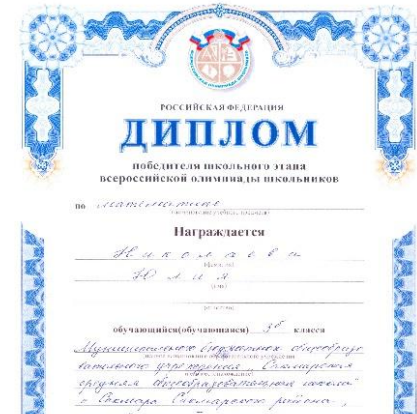 РОССИЙСКАЯ ФЕДЕРАЦИЯ
ДИПЛОМ
победителя школьного этапа
всероссийской олимпиады школьников
по математике
Награждается
Николаева
Юлия
обучающийся(обучающаяся) класса
Муниципального бюджетного общеобразо
вательного учреждения
средняя общеобразовательная школа